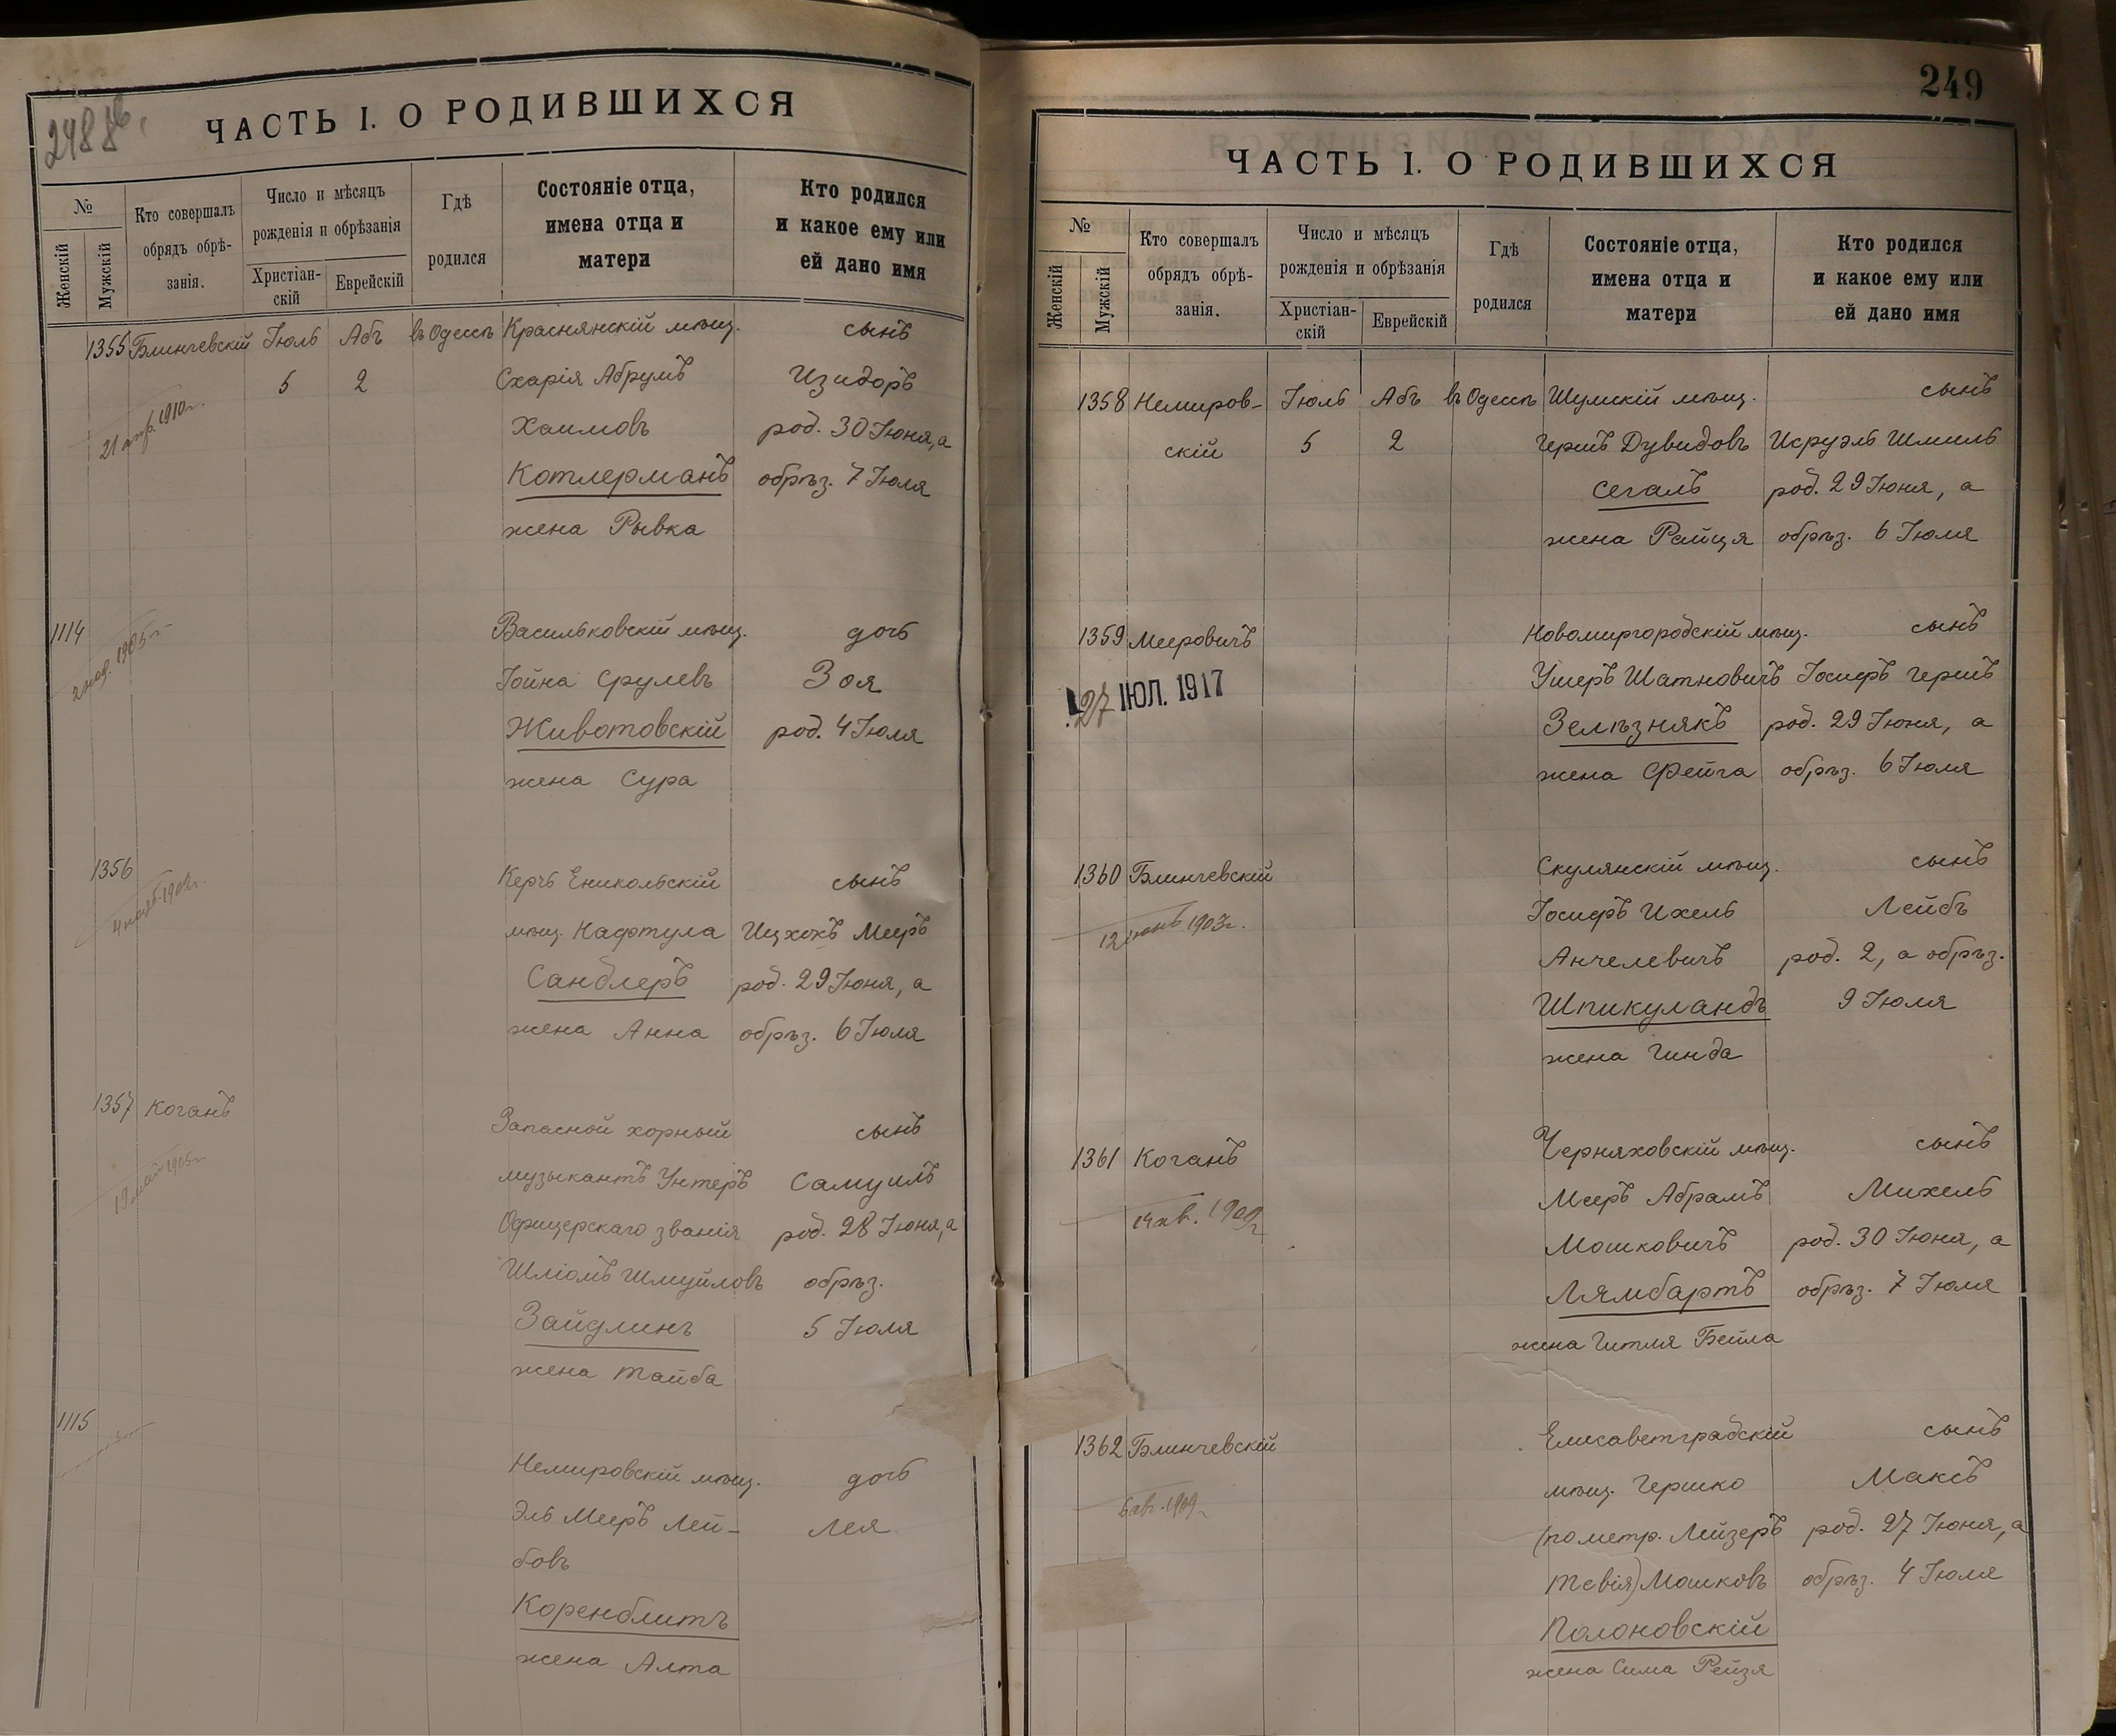 248 об.
ЧАСТЬ I. О РОДИВШИХСЯ
№
Женскій
Мужскій
Кто совершалъ
обрядъ обрѣ-
занія.
Число и мѣсяцъ
рожденія и обрѣзанія
Христіан-
скій
Еврейскій
Гдѣ
родился
Состояніе отца,
имена отца и
матери
Кто родился
и какое ему или
ей дано имя
1355 Блинчевскій Іюль Абъ въ Одессѣ Краснянскій мѣщ. сынъ
5 2 Схарія Абрумъ Изидоръ
21 апр. 1910 г.
Хаимовъ род. 30 Іюня, а
Котлерманъ обрѣз. 7 Іюля
жена Рывка
1114 Васильковскій мѣщ. дочь
1905 г.
Іойна Срулевъ Зоя
Животовскій род. 4 Іюля
жена Сура
1356 Керчь Еникольскій сынъ
мѣщ. Нафтула Ицхокъ Мееръ
Сандлеръ род. 29 Іюня, а
жена Анна обрѣз. 6 Іюля
1357 Коганъ Запасной хорный сынъ
музыкантъ Унтеръ Самуилъ
1905 г.
Офицерскаго званія род. 28 Іюня, а
Шліомъ Шмуйловъ обрѣз.
Зайдлинъ 5 Іюля
жена Тайба
1115
Немировскій мѣщ. дочь
Эль Мееръ Лей- Лея
бовъ
Коренблитъ
жена Алта
249
ЧАСТЬ I. О РОДИВШИХСЯ
№
Женскій
Мужскій
Кто совершалъ
обрядъ обрѣ-
занія.
Число и мѣсяцъ
рожденія и обрѣзанія
Христіан-
скій
Еврейскій
Гдѣ
родился
Состояніе отца,
имена отца и
матери
Кто родился
и какое ему или
ей дано имя
1358 Немиров- Іюль Абъ въ Одессѣ Шумскій мѣщ. сынъ
скій 5 2 Гершъ Дувидовъ Исруэль Шмиль
Сегалъ род. 29 Іюня, а
жена Райця обрѣз. 6 Іюля
1359 Мееровичъ Новомиргородскій мѣщ. сынъ
27 ІЮЛ. 1917
Ушеръ Шатновичъ Іосифъ Гершъ
Зелѣзнякъ род. 29 Іюня, а
жена Фейга обрѣз. 6 Іюля
1360 Блинчевскій Скулянскій мѣщ. сынъ
12 іюнь 1903 г.
Іосифъ Ихель Лейбъ
Анчелевичъ род. 2, а обрѣз.
Шпикуландъ 9 Іюля
жена Гинда
1361 Коганъ Черняховскій мѣщ. сынъ
1909 г.
Мееръ Абрамъ Михель
Мошковичъ род. 30 Іюня, а
Лямбартъ обрѣз. 7 Іюля
жена Гитля Бейла
1362 Блинчевскій Елисаветградскій сынъ
6 ав. 1909 г.
мѣщ. Гершко Максъ
(по метр. Лейзеръ род. 27 Іюня, а
Тевія) Мошковъ обрѣз. 4 Іюля
Полоновскій
жена Сима Рейзя